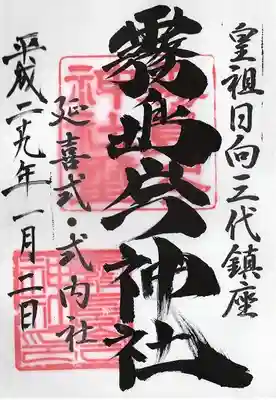 皇祖日向三代鎮座
霧島岑神社
延喜式・式内社
平成二九年一月二日